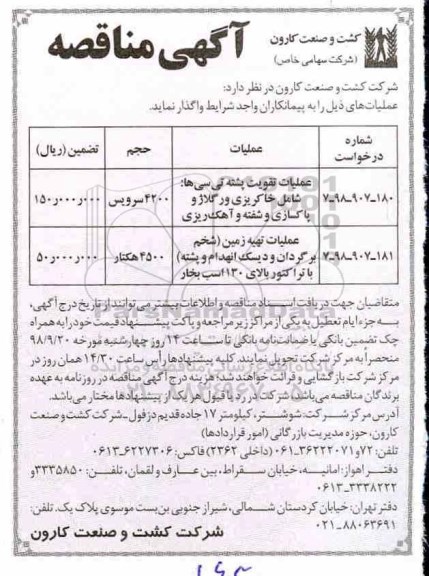 کشت و صنعت کارون
(شرکت سهامی خاص)
آگهی مناقصه
شرکت کشت و صنعت کارون در نظر دارد:
عملیات‌های ذیل را به پیمانکاران واجد شرایط واگذار نماید.
شماره درخواست | عملیات | حجم | تضمین (ریال)
۱۸۰-۹۰۷-۹۸-۷ | عملیات تقویت پشته تی سی‌ها: شامل خاکریزی ورگلاژ و پاکسازی و شفته و آهک ریزی | ۴۲۰۰ سرویس | ۱۵۰٫۰۰۰٫۰۰۰
۱۸۱-۹۰۷-۹۸-۷ | عملیات تهیه زمین (شخم برگردان و دیسک انهدام و پشته) با تراکتور بالای ۱۳۰ اسب بخار | ۴۵۰۰ هکتار | ۵۰٫۰۰۰٫۰۰۰
متقاضیان جهت دریافت اسناد مناقصه و اطلاعات بیشتر می‌توانند از تاریخ درج آگهی،
به جزء ایام تعطیل به یکی از مراکز زیر مراجعه و پاکت پیشنهاد قیمت خود را به همراه
چک تضمین بانکی یا ضمانت‌نامه بانکی تا ساعت ۱۴ روز چهارشنبه مورخه ۹۸/۹/۲۰
منحصراً به مرکز شرکت تحویل نمایند. کلیه پیشنهادها رأس ساعت ۱۴/۳۰ همان روز در
مرکز شرکت بازگشایی و قرائت خواهند شد؛ هزینه درج آگهی مناقصه در روزنامه به عهده
برندگان مناقصه می‌باشد، شرکت در رد یا قبول هر یک از پیشنهادها مختار می‌باشد.
آدرس مرکز شرکت: شوشتر، کیلومتر ۱۷ جاده قدیم دزفول_شرکت کشت و صنعت
کارون، حوزه مدیریت بازرگانی (امور قراردادها)
تلفن: ۷۲ و ۳۶۲۲۲۰۷۱-۰۶۱ (داخلی ۲۳۶۲) فاکس: ۶۲۲۷۳۰۶-۰۶۱۳
دفتر اهواز: امانیه، خیابان سقراط، بین عارف و لقمان، تلفن: ۳۳۳۵۸۵۰ و
۳۳۳۸۲۲۲-۰۶۱۳
دفتر تهران: خیابان کردستان شمالی، شیراز جنوبی بن‌بست موسوی پلاک یک. تلفن:
۸۸۰۶۳۶۹۱-۰۲۱
شرکت کشت و صنعت کارون
ParsNamadData